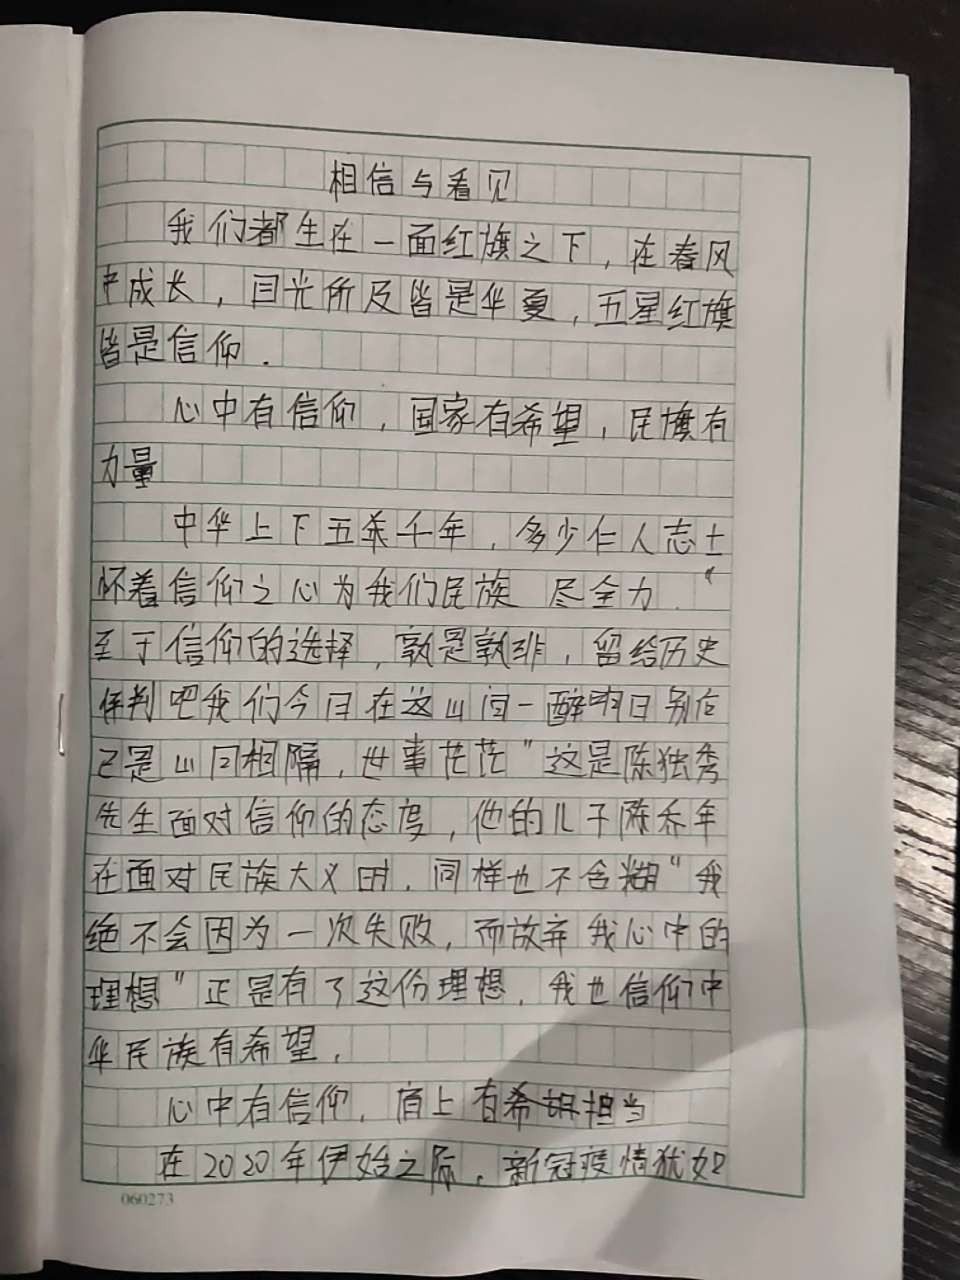 相信与看见
我们都生在一面红旗之下，在春风
中成长，目光所及皆是华夏，五星红旗
皆是信仰．
心中有信仰，国家有希望，民旗有
力量
中华上下五千年，多少仁人志士
怀着信仰之心为我们民族 尽全力．“
至于信仰的选择，孰是孰非，留给历史
评判吧我们今日在这山间一醉明日别后
已是山回相隔，世事茫茫”这是陈独秀
先生面对信仰的态度，他的儿子陈乔年
在面对民族大义时．同样也不含糊“我
绝不会因为一次失败，而放弃我心中的
理想”正是有了这份理想．我也信仰中
华民族有希望．
心中有信仰．肩上有担当
在2020年伊始之际．新冠疫情犹如
060273